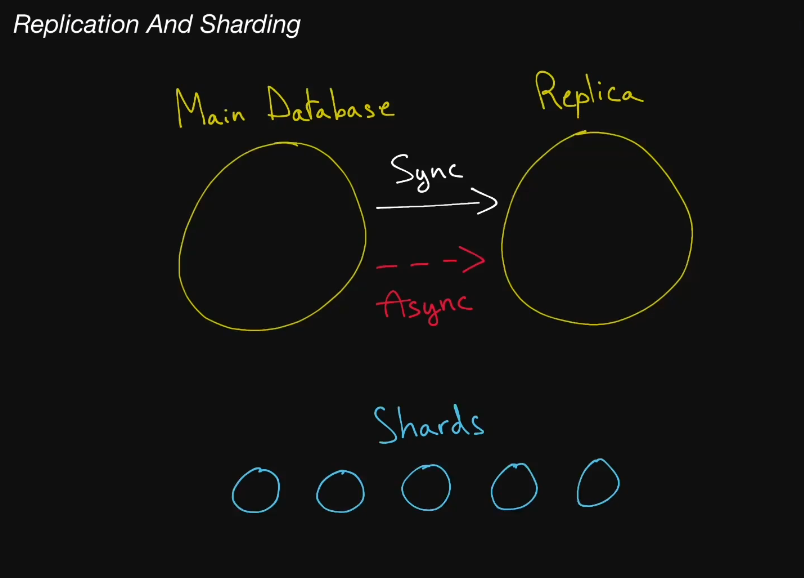 Replication And Sharding
Main Database
Replica
Sync
Async
Shards